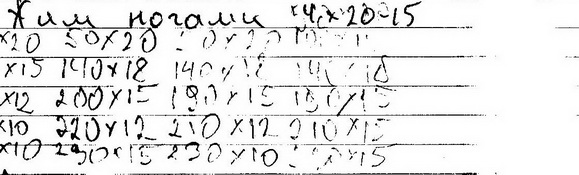 Жим ногами 40×20-15
×20 50×20
×15 140×18 140×18 140×18
×12 200×15 190×15 190×15
×10 220×12 210×12 210×15
×10 230×15 230×10 ×15